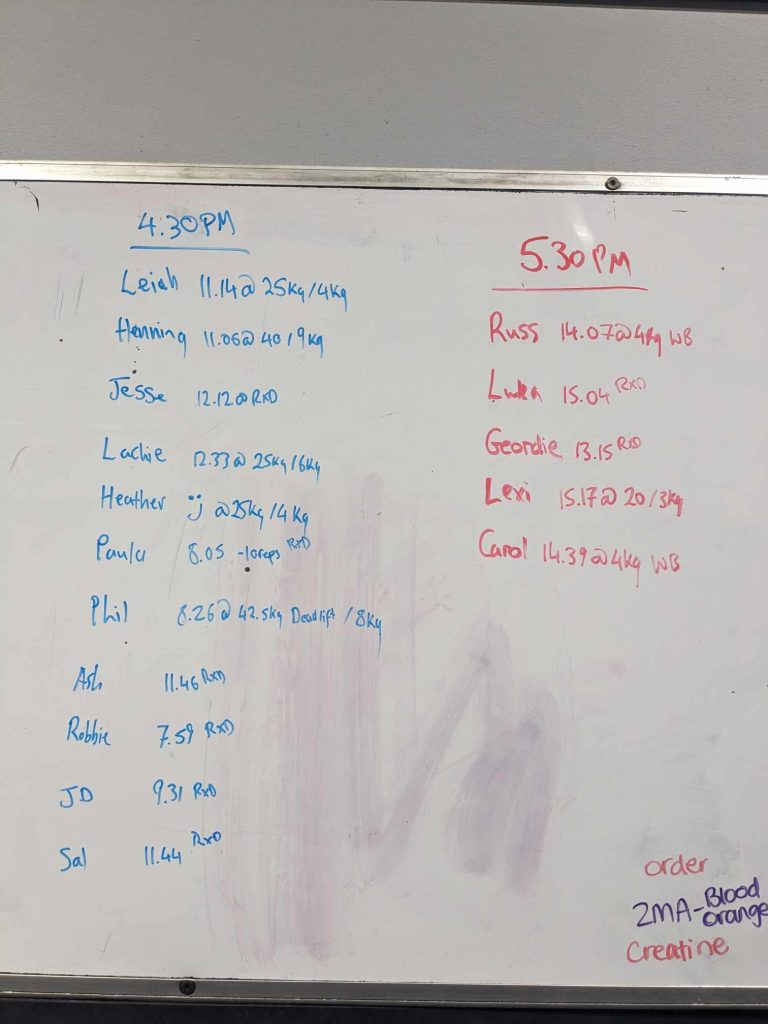 4.30PM
Leiah 11.14@ 25kg/4kg
Henning 11.06@ 40/9kg
Jesse 12.12@ RxD
Lachie 12.33@ 25kg/6kg
Heather @25kg/4kg
Paula 8.05 -10reps RxD
Phil 8.26@ 42.5kg Deadlift / 8kg
Ash 11.46 RxD
Robbie 7.59 RxD
JD 9.31 RxD
Sal 11.44 RxD
5.30PM
Russ 14.07@4kg WB
Luka 15.04 RxD
Geordie 13.15 RxD
Lexi 15.17@ 20/3kg
Carol 14.39@4kg WB
order
ZMA-Blood
orange
Creatine